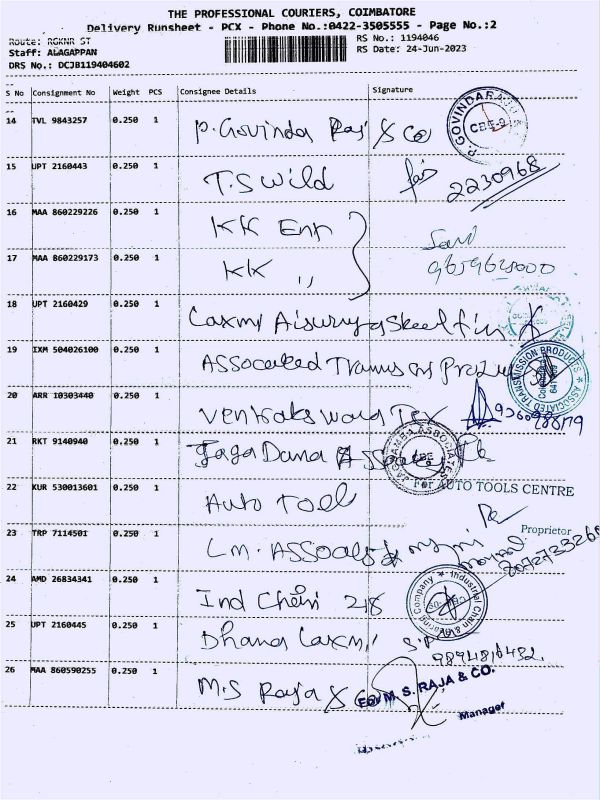 THE PROFESSIONAL COURIERS, COIMBATORE
Delivery Runsheet - PCX - Phone No.:0422-3505555 - Page No.:2
Route: RGKNR ST
RS No.: 1194046
Staff: ALAGAPPAN
RS Date: 24-Jun-2023
DRS No.: DCJB119404602
S No Consignment No Weight PCS Consignee Details Signature
14 TVL 9843257 0.250 1 P. Govinda Raj & Co
P. GOVINDARAJ CBE-9
15 UPT 2160443 0.250 1 T.S Wild 2230968
16 MAA 860229226 0.250 1 KK Enn
17 MAA 860229173 0.250 1 KK ,,
18 UPT 2160429 0.250 1 Laxmi
19 IXM 504026100 0.250 1
ASSOCIATED TRANSMISSION PRODUCTS
20 ARR 10303440 0.250 1 Tex
21 RKT 9140940 0.250 1
JAGADAMBA ASSOCIATES CBE
22 KUR 530013601 0.250 1 Auto Tool
For AUTO TOOLS CENTRE
Proprietor
23 TRP 7114501 0.250 1 L.M.
24 AMD 26834341 0.250 1 Ind Chein
Industrial Chain & Company
25 UPT 2160445 0.250 1 Dhana Laxmi S.P
26 MAA 860590255 0.250 1 M.S Raja & Co
For M. S. RAJA & CO.
Manager